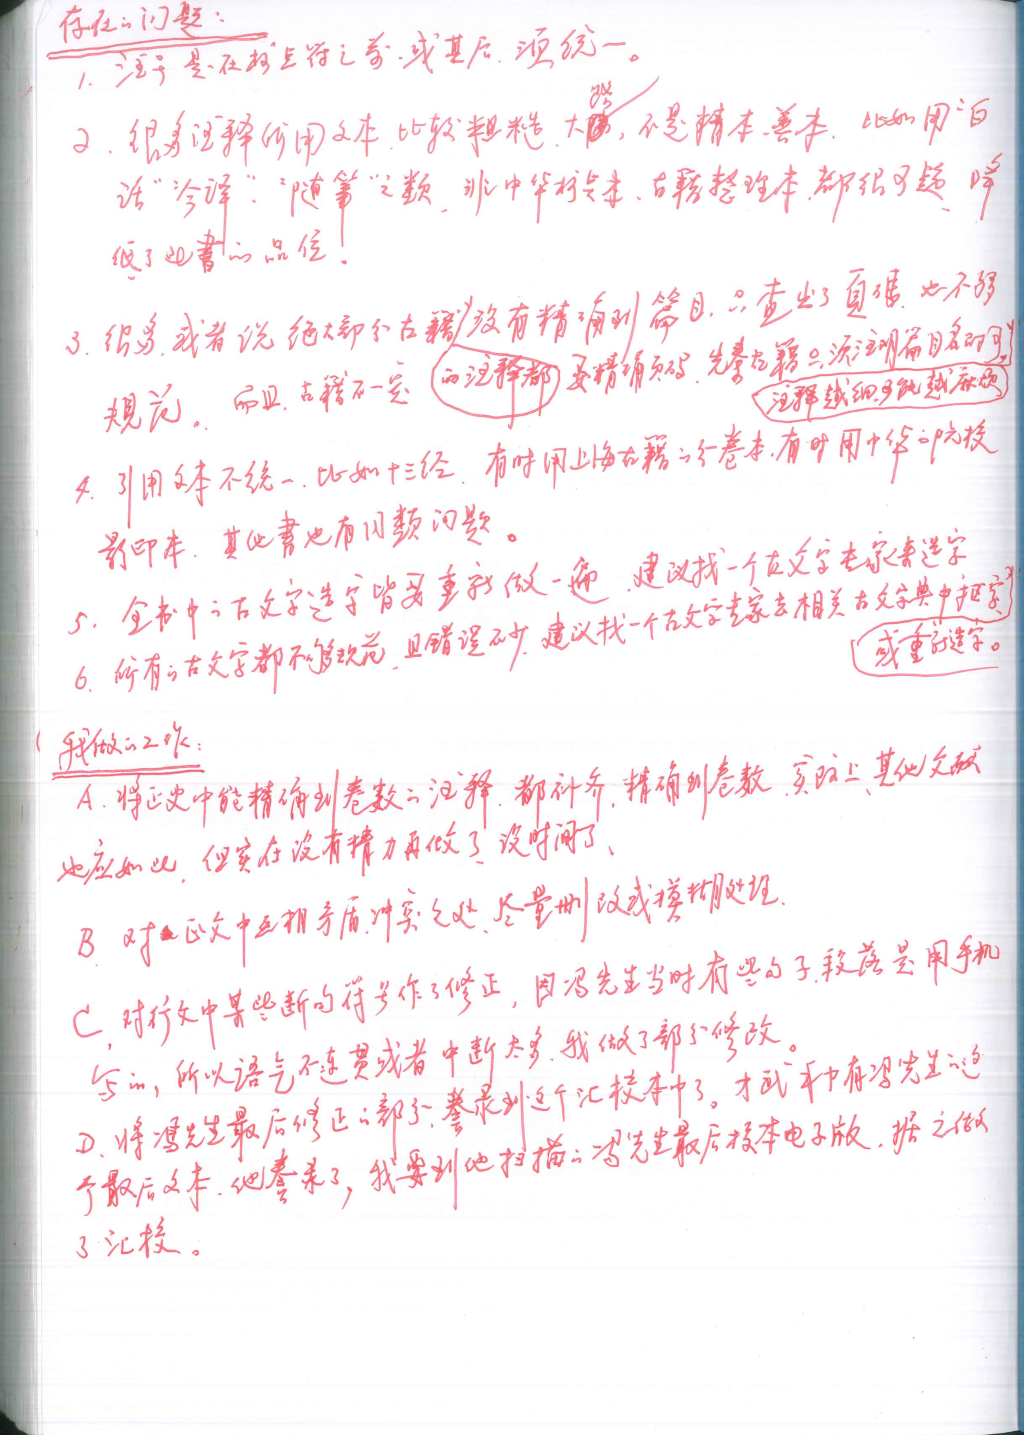 存在的问题：
1. 注号是在标点符之前，或其后，须统一。
2. 很多注释所用文本，比较粗糙，大路，不是精本、善本，比如用“白
话”“今译”、“随笔”之类，非中华标点本、古籍整理本，都很可疑，降
低了此书的品位！
3. 很多，或者说绝大部分古籍的注释都没有精确到篇目，只查出了页码，也不够
规范。而且，古籍不一定要精确页码，先秦古籍只须注明篇目名即可。
注释越细可能越麻烦
4. 引用文本不统一，比如十三经，有时用上海古籍的分卷本，有时用中华的阮校
影印本，其他书也有同类问题。
5. 全书中的古文字造字皆要重新做一遍，建议找一个古文字专家来造字
6. 所有的古文字都不够规范，且错误不少，建议找一个古文字专家去相关古文字典中找字，
或重新造字。
我做的工作：
A. 将正史中能精确到卷数的注释，都补齐，精确到卷数，实际上，其他文献
也应如此，但实在没有精力再做了，没时间了、
B. 对正文中互相矛盾冲突之处，尽量删改或模糊处理.
C. 对行文中某些断句符号作了修正，因冯先生当时有些句子、段落是用手机
写的，所以语气不连贯或者中断太多，我做了部分修改。
D. 将冯先生最后修正的部分，誊录到这个汇校本中了。才武手中有冯先生的这
个最后文本，他誊录了，我要到他扫描的冯先生最后校本电子版，据之做
了汇校。